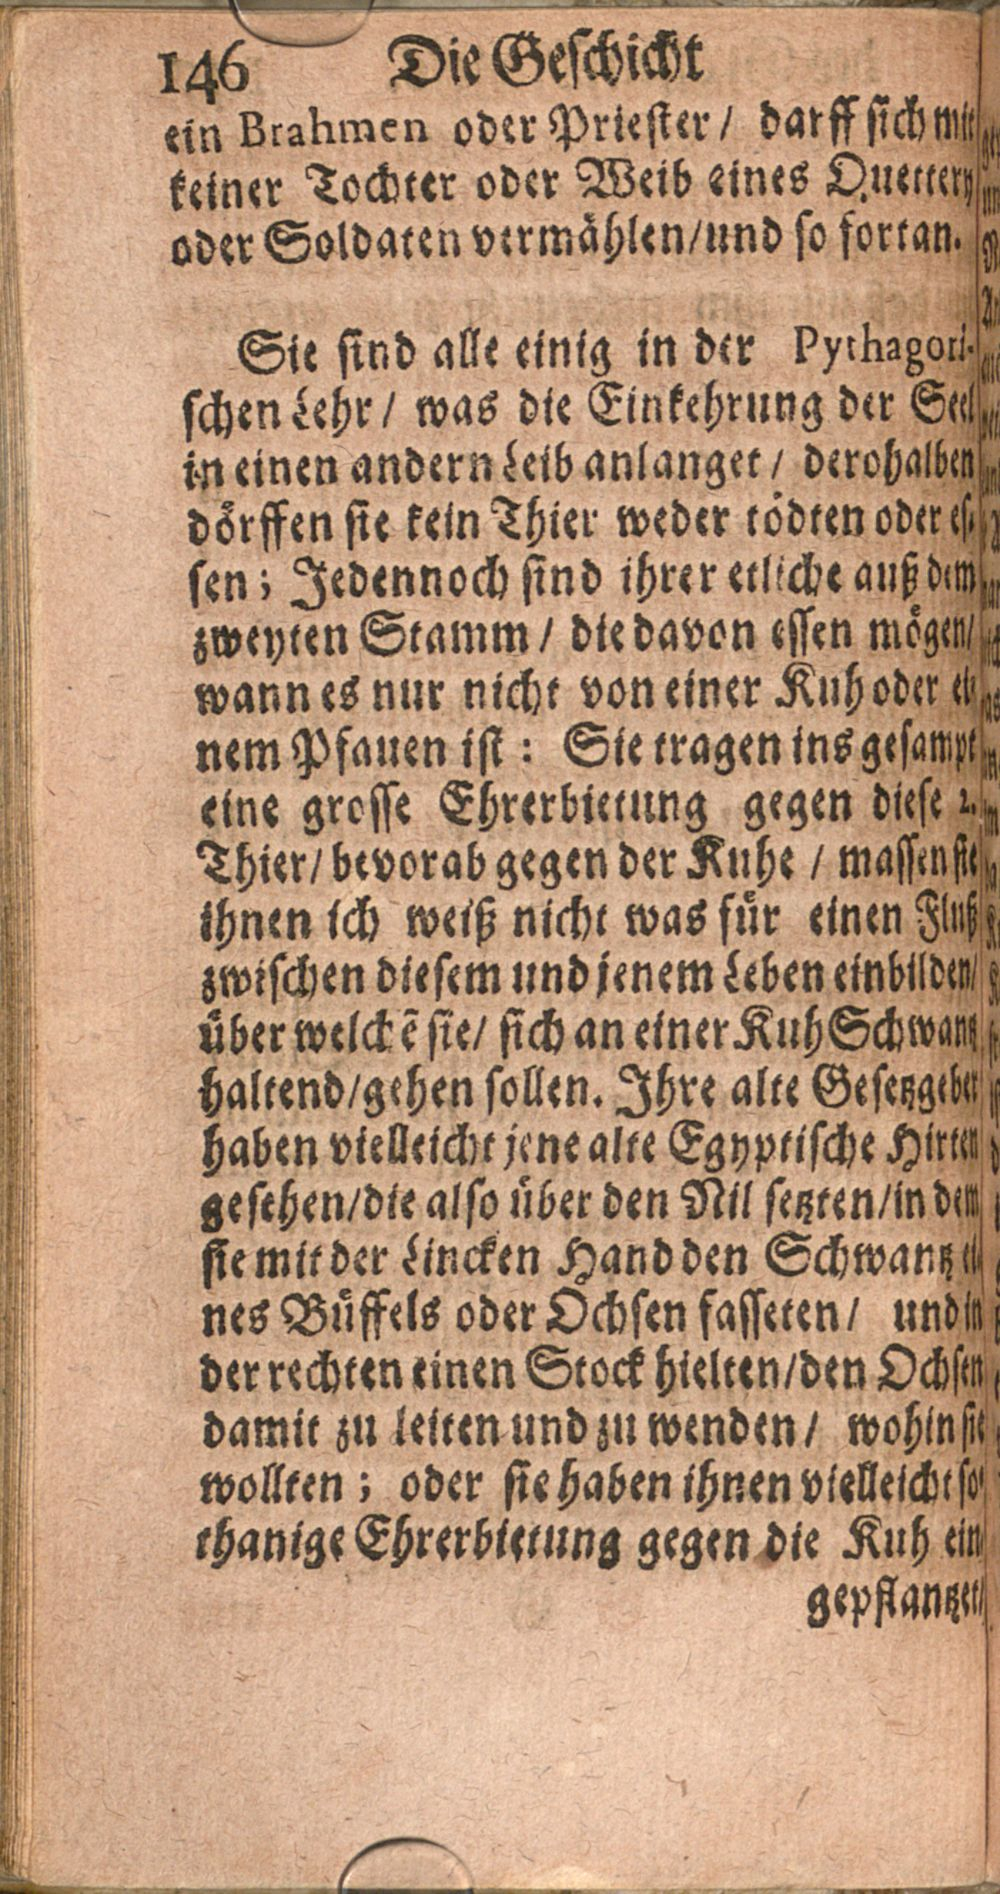 146 Die Geschicht
ein Brahmen oder Priester / darff sich mit
keiner Tochter oder Weib eines Quettery
oder Soldaten vermählen/und so fortan.
Sie sind alle einig in der Pythagori-
schen Lehr / was die Einkehrung der Seel
in einen andern Leib anlanget / derohalben
dörffen sie kein Thier weder tödten oder es-
sen; Jedennoch sind ihrer etliche auß dem
zweyten Stamm / die davon essen mögen/
wann es nur nicht von einer Kuh oder ei-
nem Pfauen ist : Sie tragen ins gesampt
eine grosse Ehrerbietung gegen diese 2.
Thier/ bevorab gegen der Kuhe / massen sie
ihnen ich weiß nicht was für einen Fluß
zwischen diesem und jenem Leben einbilden/
über welchẽ sie/ sich an einer Kuh Schwantz
haltend/gehen sollen. Ihre alte Gesetzgeber
haben vielleicht jene alte Egyptische Hirten
gesehen/die also über den Nil setzten/in dem
sie mit der Lincken Hand den Schwantz ei-
nes Büffels oder Ochsen fasseten / und in
der rechten einen Stock hielten/den Ochsen
damit zu leiten und zu wenden / wohin sie
wollten ; oder sie haben ihnen vielleicht so-
thanige Ehrerbietung gegen die Kuh ein-
gepflantzet/